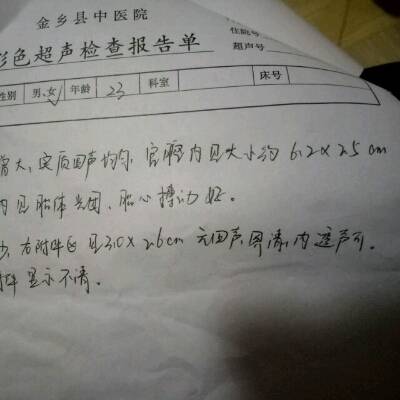 金乡县中医院
彩色超声检查报告单
住院号
超声号
性别 男、女 年龄 23 科室 床号
增大,实质回声均匀,宫腔内见大小约6.2×2.5cm
内见胎体光团,胎心搏动好。
右附件区见3.0×2.6cm无回声,界清,内透声可。
附件显示不清。